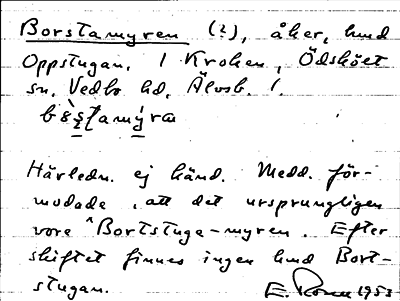 Borstamyren (?), åker, hmd
Oppstugan, 1 Kroken, Ödsköлt
sn, Vedbo hd, Älvsb. l.
Härledn. ej känd. Medd. för-
modade, att det ursprungligen
vore "Bortstuge-myren. Efter
skiftet finnes ingen hmd Bort-
stugan.
E. 1953